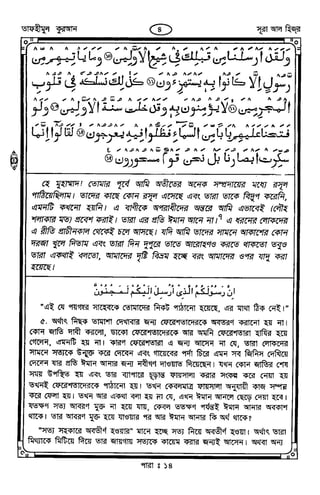 তাফহীমুল কুরআন
৪
সূরা আল হিজর
وَلَقَدْ أَرْسَلْنَا مِنْ قَبْلِكَ فِي شِيَعِ الْأَوَّلِينَ ⑩ وَمَا يَأْتِيهِمْ مِنْ
رَسُولٍ إِلَّا كَانُوا بِهِ يَسْتَهْزِءُونَ ⑪ كَذَٰلِكَ نَسْلُكُهُ فِي قُلُوبِ
الْمُجْرِمِينَ ⑫ لَا يُؤْمِنُونَ بِهِ وَقَدْ خَلَتْ سُنَّةُ الْأَوَّلِينَ ⑬ وَلَوْ
فَتَحْنَا عَلَيْهِمْ بَابًا مِنَ السَّمَاءِ فَظَلُّوا فِيهِ يَعْرُجُونَ ⑭ لَقَالُوا إِنَّمَا
سُكِّرَتْ أَبْصَارُنَا بَلْ نَحْنُ قَوْمٌ مَسْحُورُونَ ⑮
হে মুহাম্মাদ! তোমার পূর্বে আমি অতীতের অনেক সম্প্রদায়ের মধ্যে রসূল
পাঠিয়েছিলাম। তাদের কাছে কোন রসূল এসেছে এবং তারা তাকে বিদ্রূপ করেনি,
এমনটি কখনো হয়নি। এ বাণীকে অপরাধীদের অন্তরে আমি এভাবেই (লৌহ
শলাকার মত) প্রবেশ করাই। তারা এর প্রতি ঈমান আনে না।৭ এ ধরনের লোকদের
এ রীতি প্রাচীনকাল থেকেই চলে আসছে। যদি আমি তাদের সামনে আকাশের কোন
দরজা খুলে দিতাম এবং তারা দিন দুপুরে তাতে আরোহণও করতে থাকতো তবুও
তারা একথাই বলতো, আমাদের দৃষ্টি বিভ্রম হচ্ছে বরং আমাদের ওপর যাদু করা
হয়েছে।
إِنَّ رَسُولَكُمُ الَّذِي أُرْسِلَ إِلَيْكُمْ لَمَجْنُونٌ
"এই যে পয়গম্বর সাহেবকে তোমাদের নিকট পাঠানো হয়েছে, এর মাথা ঠিক নেই।"
৫. অর্থাৎ নিছক তামাশা দেখাবার জন্য ফেরেশতাদেরকে অবতরণ করানো হয় না।
কোন জাতি দাবী করলো, ডাকো ফেরেশতাদেরকে আর অমনি ফেরেশতারা হাযির হয়ে
গেলেন, এমনটি হয় না। কারণ ফেরেশতারা এ জন্য আসেন না যে, তারা লোকদের
সামনে সত্যকে উন্মুক্ত করে দেবেন এবং গায়েবের পর্দা চিরে এমন সব জিনিস দেখিয়ে
দেবেন যার প্রতি ঈমান আনার জন্য নবীগণ দাওয়াত দিয়েছেন। যখন কোন জাতির শেষ
সময় উপস্থিত হয় এবং তার ব্যাপারে চূড়ান্ত ফায়সালা করার সংকল্প করে নেয়া হয়
তখনই ফেরেশতাদেরকে পাঠানো হয়। তখন কেবলমাত্র ফায়সালা অনুযায়ী কাজ সম্পন্ন
করে ফেলা হয়। তখন আর একথা বলা হয় না যে, এখন ঈমান আনলে ছেড়ে দেয়া হবে।
যতক্ষণ সত্য আবরণ মুক্ত না হয়ে যায়, কেবল ততক্ষণ পর্যন্তই ঈমান আনার অবকাশ
থাকে। তার আবরণ মুক্ত হয়ে যাওয়ার পর আর ঈমান আনার কি অর্থ থাকে?
"সত্য সহকারে অবতীর্ণ হওয়ার" মানে হচ্ছে সত্য নিয়ে অবতীর্ণ হওয়া। অর্থাৎ তারা
মিথ্যাকে মিটিয়ে দিয়ে তার জায়গায় সত্যকে কায়েম করার জন্যই আসেন। অথবা অন্য
পারা : ১৪